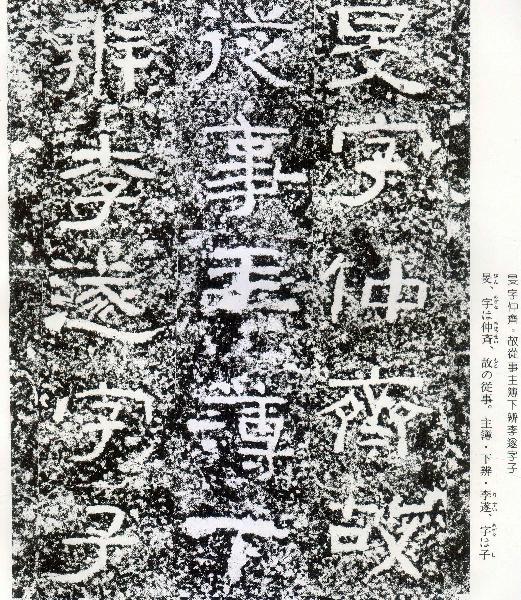 旻字仲齊故
從事主簿下
辨李遂字子
旻字仲齊。故從事主簿下辨李遂字子
旻、字は仲斉、故の従事。主簿・下辨・李遂、字は子